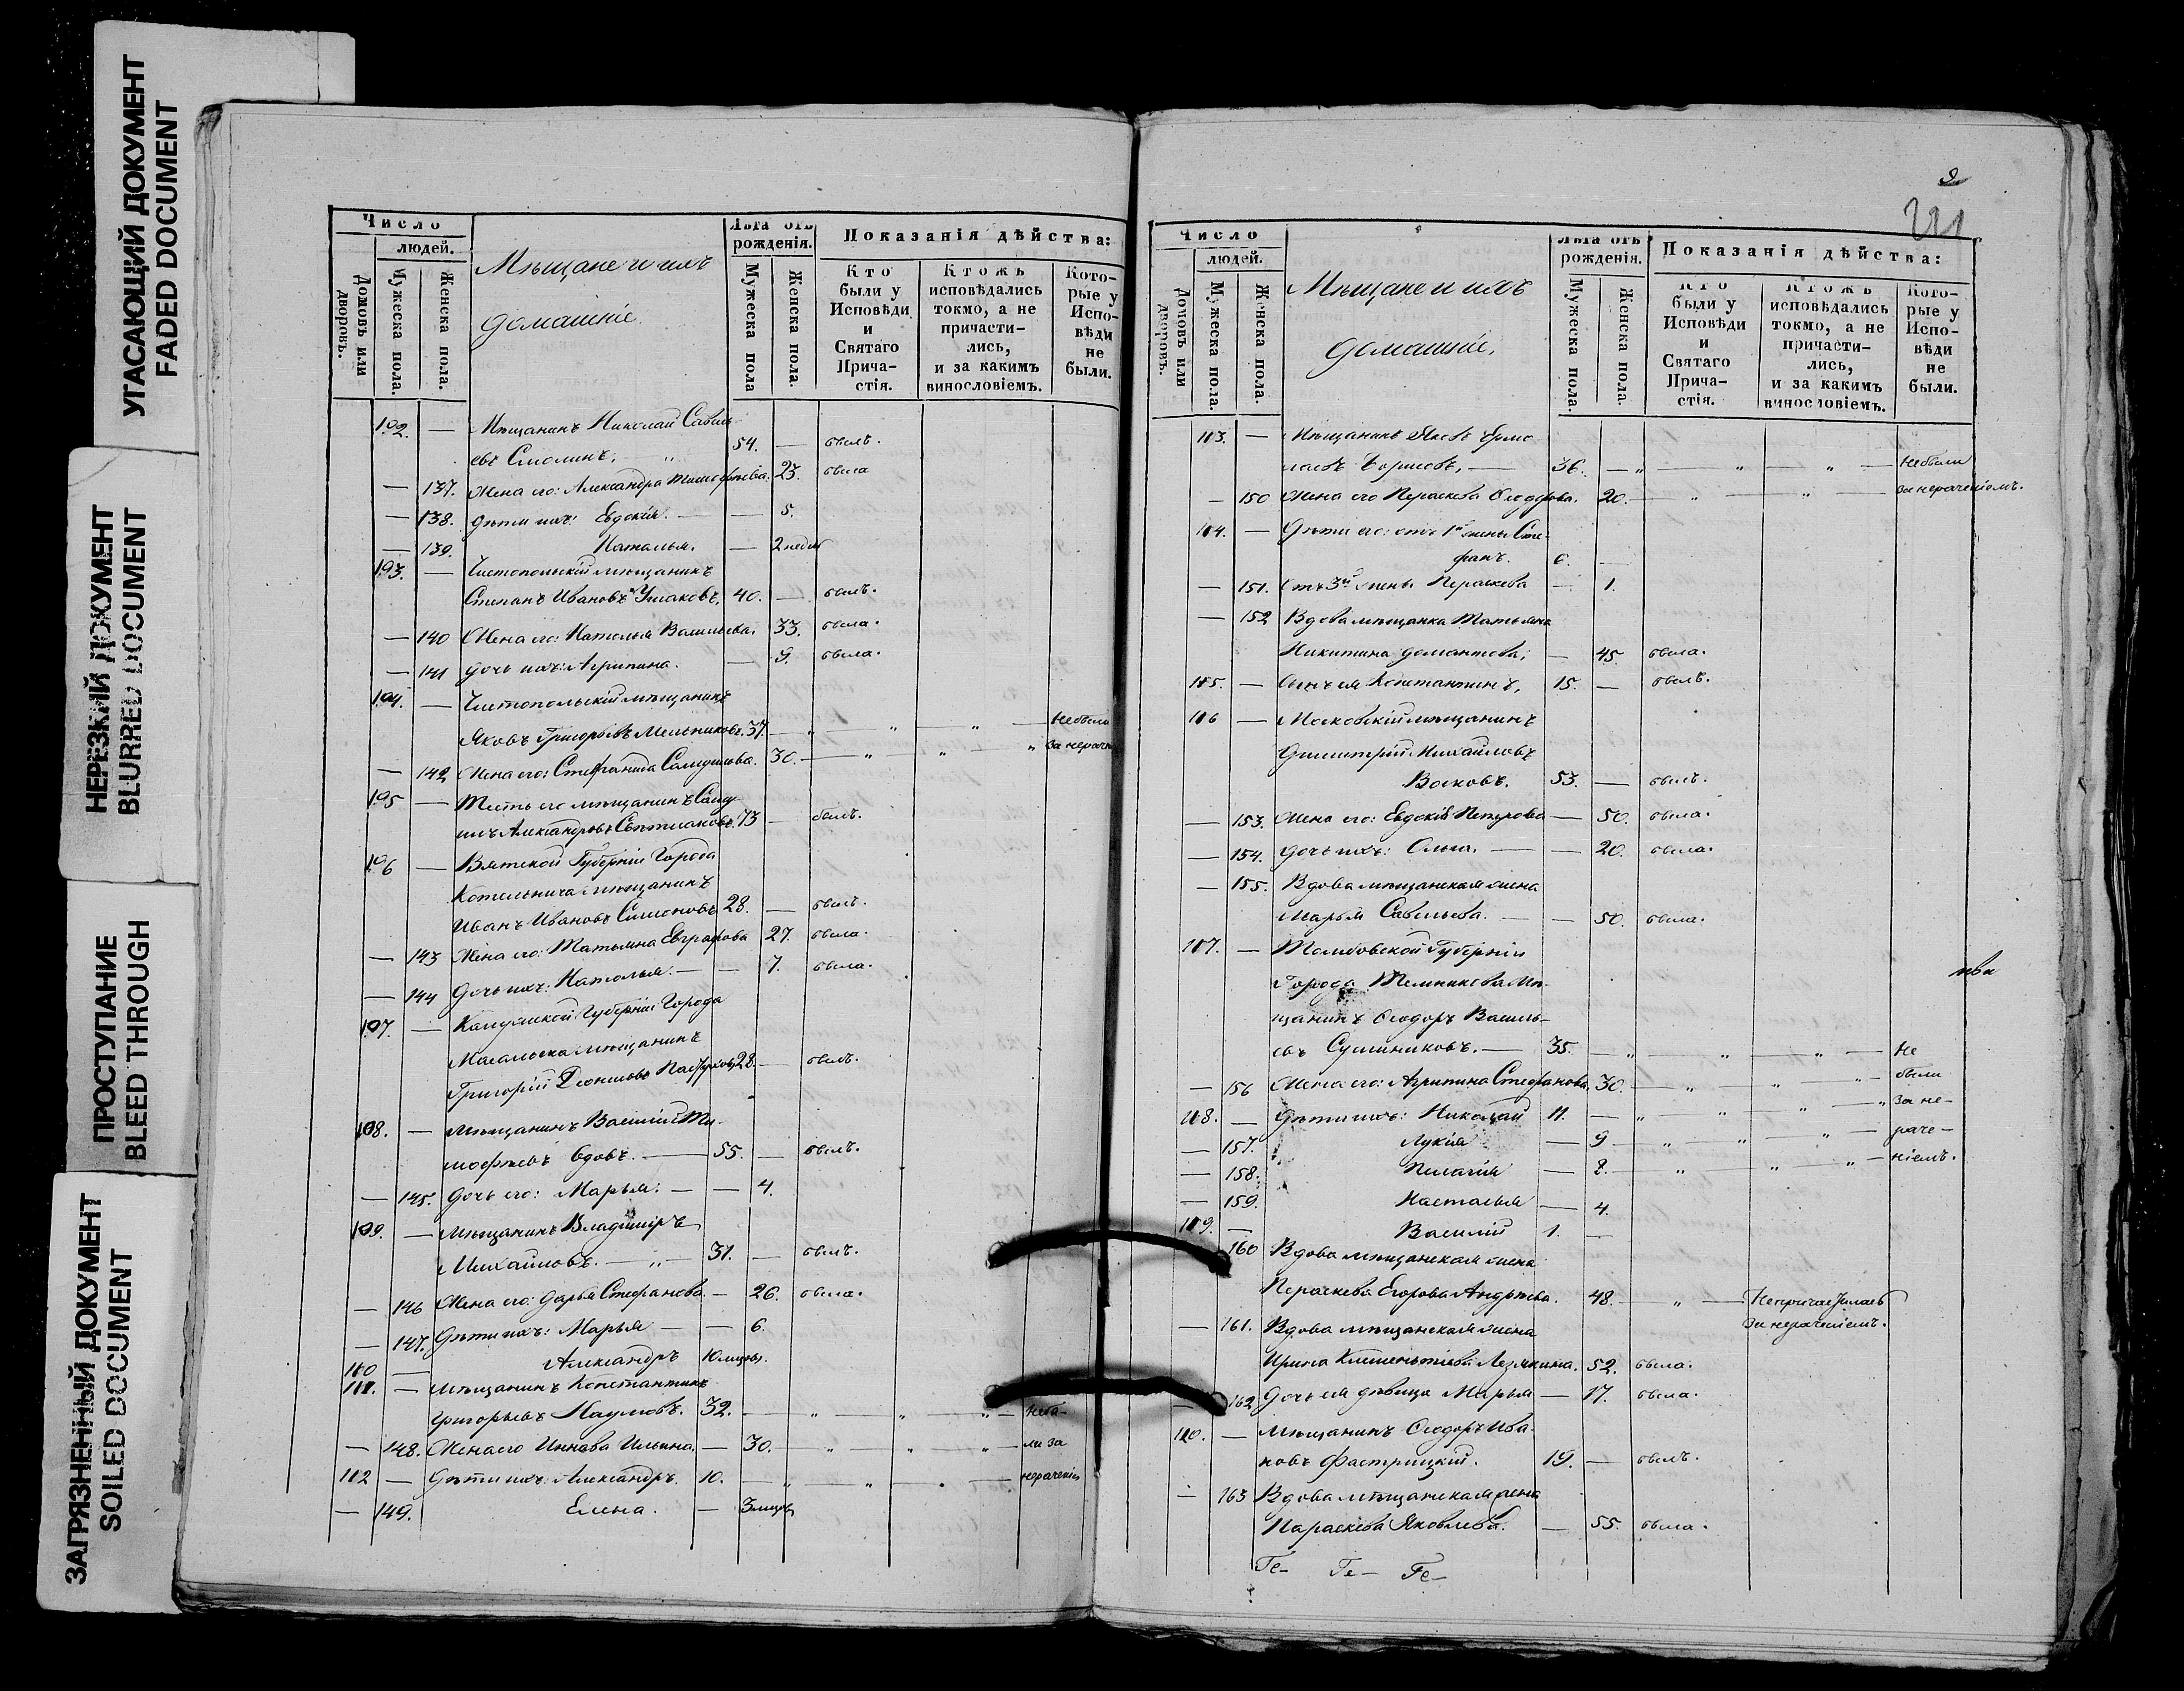 УГАСАЮЩИЙ ДОКУМЕНТ
FADED DOCUMENT
НЕРЕЗКИЙ ДОКУМЕНТ
BLURRED DOCUMENT
ПРОСТУПАНИЕ
BLEED THROUGH
ЗАГРЯЗНЕННЫЙ ДОКУМЕНТ
SOILED DOCUMENT
Число
людей.
Домовъ или дворовъ.
Мужеска пола.
Женска пола.
Мѣщане и ихъ
домашніе.
Лѣта отъ
рожденія.
Мужеска пола
Женска пола.
Показанія дѣйства:
Кто
были у
Исповѣди
и
Святаго
Прича-
стія.
Ктожъ
исповѣдались
токмо, а не
причасти-
лись,
и за какимъ
винословіемъ.
Кото-
рые у
Испо-
вѣди
не
были.
102. — Мѣщанинъ Николай Савель
евъ Смолинъ. — „ 54. — былъ.
— 137. Жена его: Александра Тимофѣева. 23. была
— 138. Дѣти ихъ: Евдокія. — — 5.
— 139. Наталья. — 2 недел
103. — Чистопольскій мѣщанинъ
Степанъ Ивановъ Ушаковъ, 40. — былъ.
— 140 Жена его: Наталья Васильева. 33. была.
— 141 Дочь ихъ: Агрипина. — 9. была.
104. — Чистопольскій мѣщанинъ
Яковъ Григорьевъ Мельниковъ. 37. — „ — „ — „ — Небыли
— 142 Жена его: Стефанида Самуилова. 30. — „ „ „ за нерач
105 — Тесть его мѣщанинъ Саму
илъ Александровъ 73 — былъ.
106 — Вятской Губерніи Города
Котельнича мѣщанинъ
Иванъ Ивановъ Симоновъ 28. — былъ.
— 143 Жена его: Татьяна Евграфова 27. была.
— 144 Дочь ихъ: Наталья. — — 7. была.
107. — Калужской Губерніи Города
Масальска мѣщанинъ
Григорій Пастуховъ, 28. — былъ.
108. — Мѣщанинъ Василій Ти-
мофѣевъ вдовъ. — 55. — былъ.
— 145. Дочь его: Марья. — — 4.
109. — Мѣщанинъ Владиміръ
Михайловъ. — „ — 31. — былъ.
— 146 Жена его: Дарья Стефанова. — 26. была.
— 147. Дѣти ихъ: Марья — — 6.
110 — Александръ 10 мцовъ.
111. — Мѣщанинъ Константинъ
Григорьевъ Наумовъ. 32. — „ — „ — „ — Небы-
— 148. Жена его Ильина. — 30. — „ „ „ — ли за
112 — Дѣти ихъ: Александръ. 10. — „ — „ — нераченіе
— 149. Елена. — 3 мцов
9
221
Число
людей.
Домовъ или дворовъ.
Мужеска пола.
Женска пола.
Мѣщане и ихъ
домашніе.
Лѣта отъ
рожденія.
Мужеска пола.
Женска пола.
Показанія дѣйства:
Кто
были у
Исповѣди
и
Святаго
Прича-
стія.
Ктожъ
исповѣдались
токмо, а не
причасти-
лись,
и за какимъ
винословіемъ.
Кото-
рые у
Испо-
вѣди
не
были.
113. — Мѣщанинъ Яковъ Ермо
лаевъ Борисовъ, — 36. — „ — „ — „ — Небыли
— 150 Жена его Параскева Ѳеодорова. 20. — „ — „ — за нераченіемъ.
114. — Дѣти его: отъ 1й жены Сте-
фанъ. 6. —
— 151. Отъ 3й жены Параскева — 1.
— 152 Вдова мѣщанка Татьяна
Никитина — 45. была.
115. — Сынъ ея Константинъ, 15. — былъ.
116 — Московскій мѣщанинъ
Димитрій Михайловъ
Волковъ. 53. — былъ.
— 153. Жена его: Евдокія Петрова — 50. была.
— 154. Дочь ихъ: Ольга. — — 20. была.
— 155. Вдова мѣщанская жена
Марья Савельева. — — 50. была.
117. — Тамбовской Губерніи
Города Темникова Мѣ-
щанинъ Ѳеодоръ Василь-
евъ Сушниковъ. — 35. — „ „ — „ — Не
— 156 Жена его: Агрипина Стефанова. 30. — „ „ „ — были
118. — Дѣти ихъ: Николай 11. — „ „ „ „ за не-
— 157. Лукія — 9 — „ „ — „ — раче-
— 158. Пелагія — 8. — „ „ — „ — ніемъ.
— 159. Наталья — 4.
119. — Василій 1. —
160 Вдова мѣщанская жена
Параскева Егорова 48. — „ — Непричастилась
за нераченіемъ.
— 161. Вдова мѣщанская жена
Ирина Климентьева 52. была.
— 162 Дочь ея дѣвица Марья — 17. была.
120. — Мѣщанинъ Ѳеодоръ Ива
новъ 19. — былъ.
— 163 Вдова мѣщанская жена
Параскева Яковлева. — 55. была.
Ге— Ге— Ге—